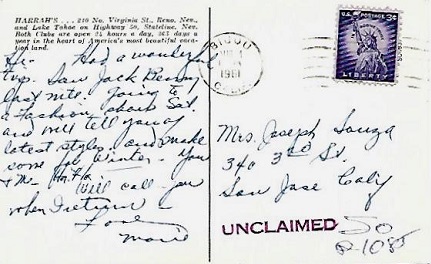 HARRAH'S . . . 210 No. Virginia St., Reno, Nev.
and Lake Tahoe on Highway 50, Stateline, Nev.
Both Clubs are open 24 hours a day, 365 days a
year in the heart of America's most beautiful vacation
land.
Hi - Had a wonderful
trip. Saw Jack Benny
last nite. Going to
a Fashion show Sat.
and will tell you of
latest styles. and make
come for Winter. You
& Mr.
Will call you
when I return
Love
Marie
BIJOU
1961
CALIF.
U.S. POSTAGE 3¢
LIBERTY
Mrs. Joseph Souza
340 3rd St.
San Jose Calif
UNCLAIMED So
8-1085